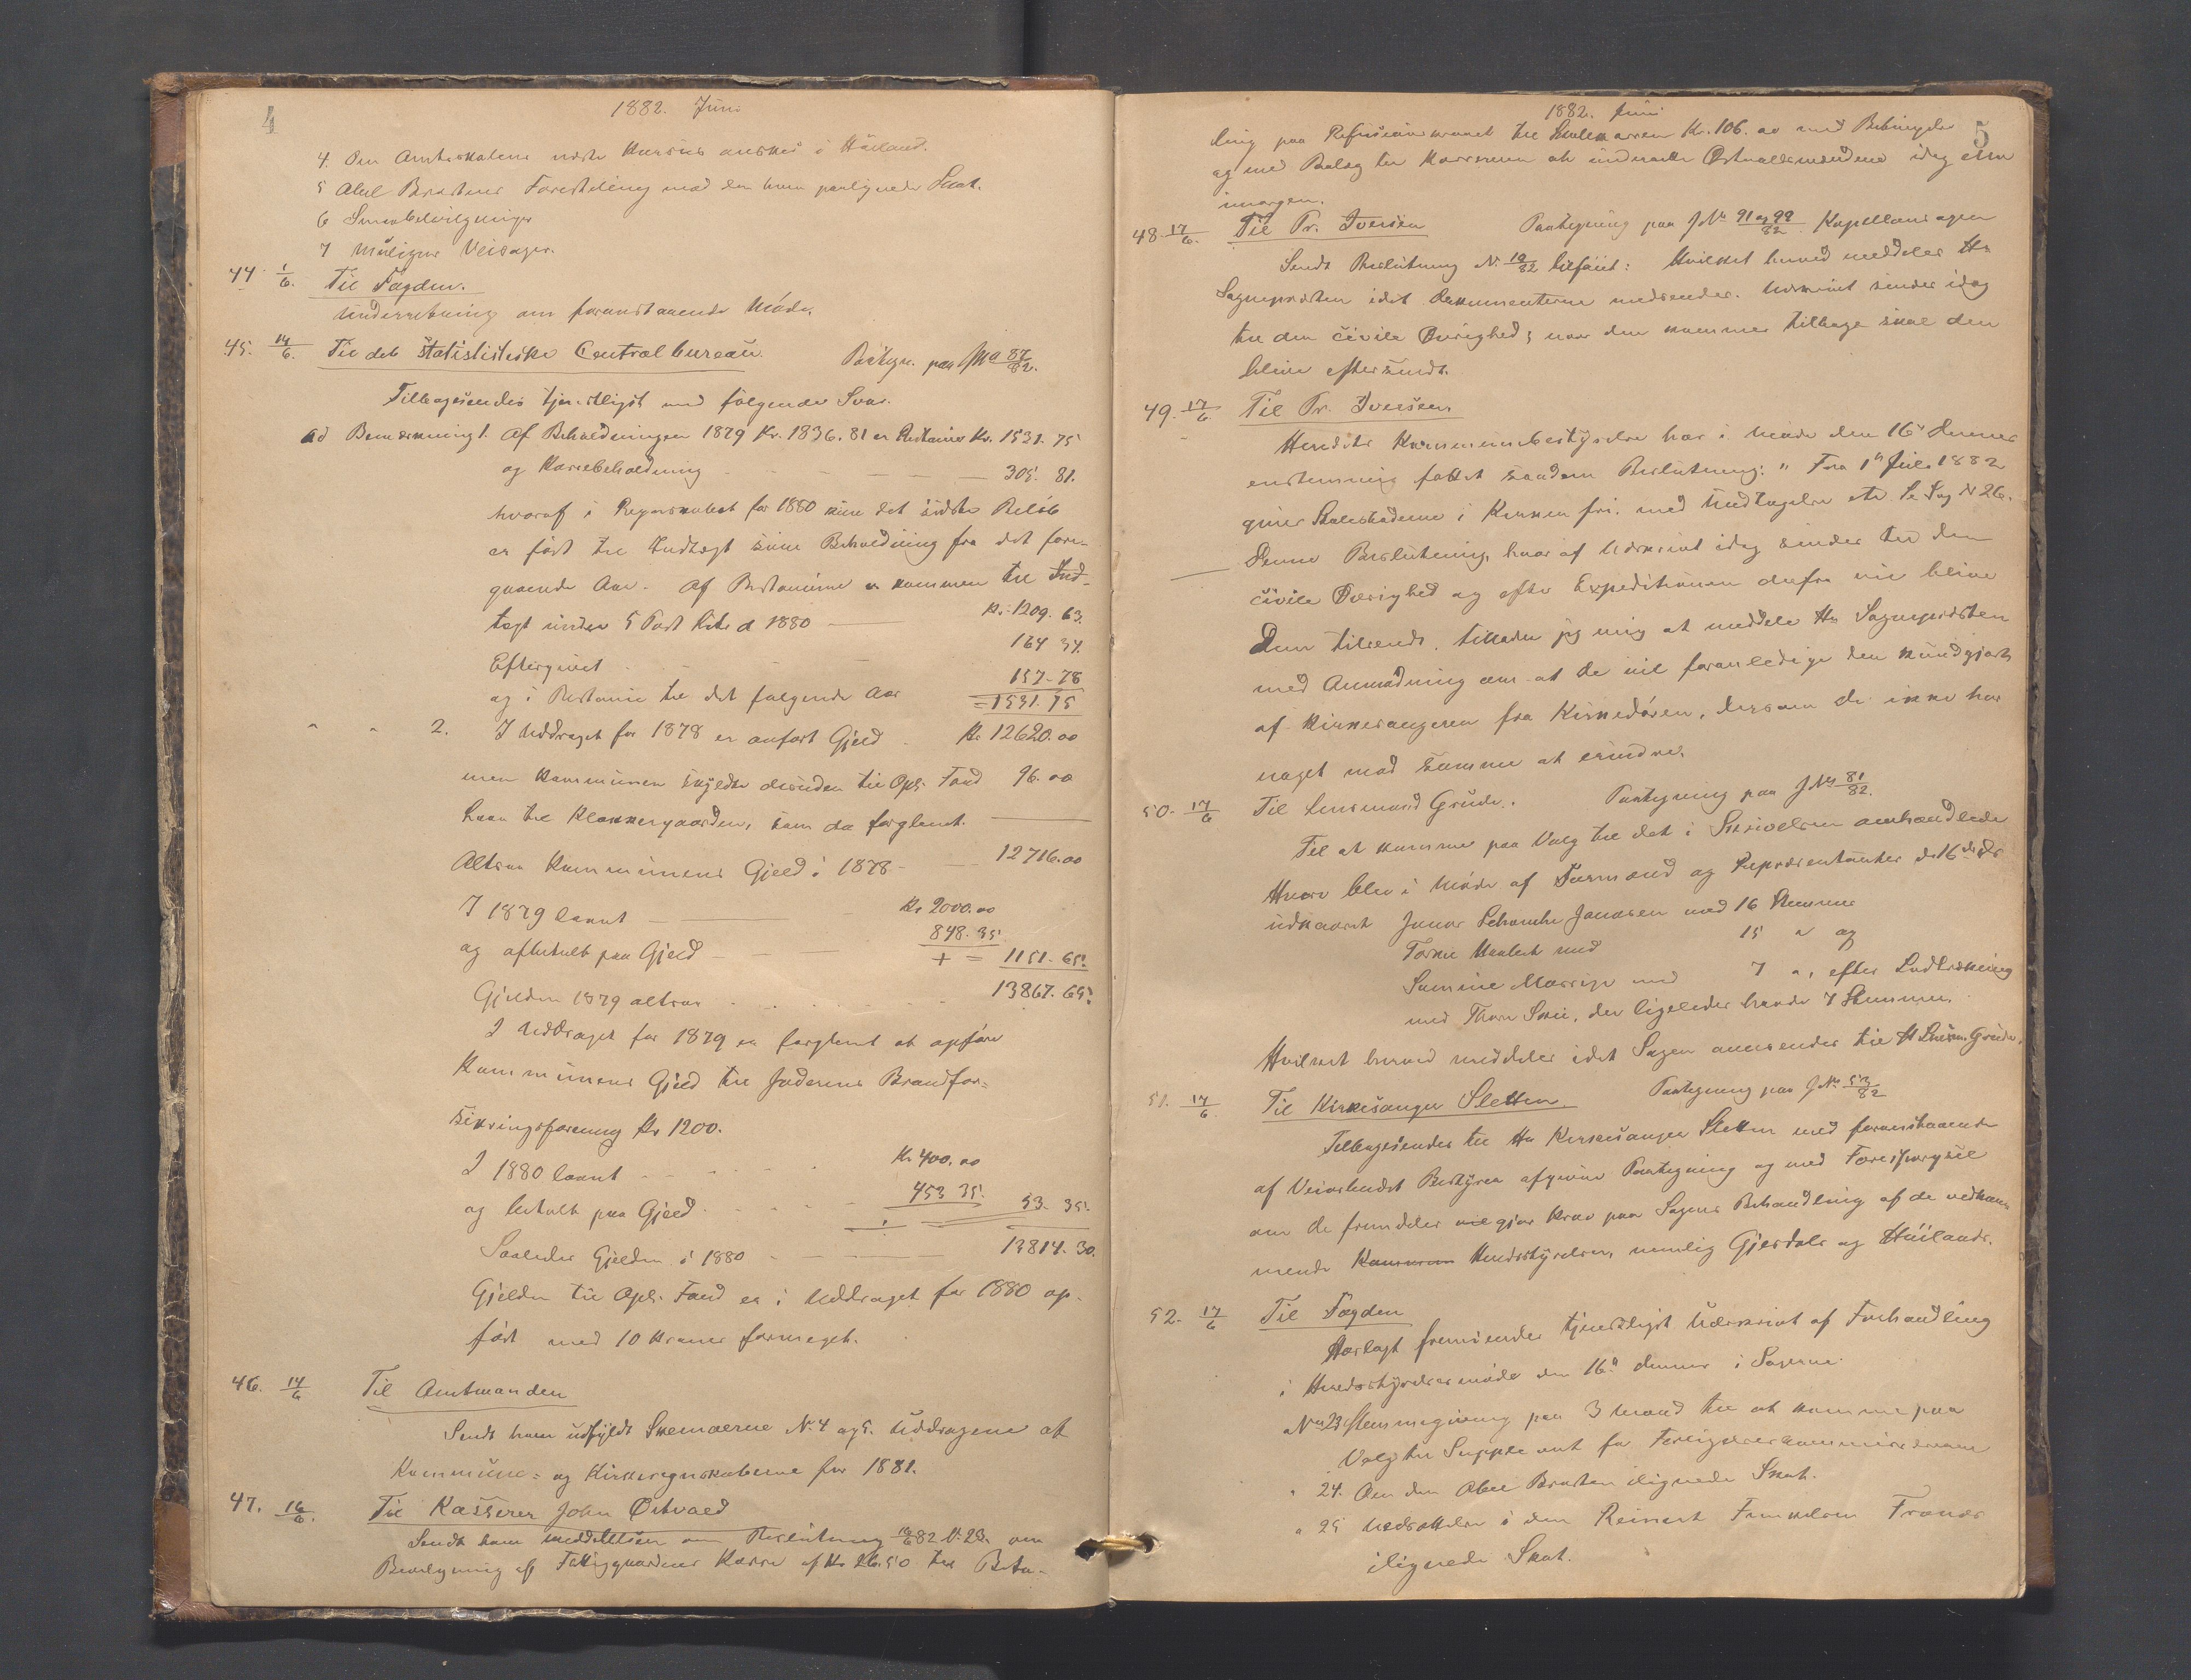 4
1882. Juni
4. Om Amtsskolens næste Kursus ønskes i Høiland.
5 Abel Brastens Forestilling mod den ham paalignede Skat.
6 Smaabevilgninger
7 Muligens Veisager.
44 1/6. Til Fogden.
Underretning om foranstaaende Møde.
45. 14/6. Til det statistiske Centralbureau. Paategn. paa JNo 87/82.
Tilbagesendes tjenstligst med følgende Svar.
ad Bemærkning 1. Af Beholdningen 1879 Kr. 1836.81 er Restancer Kr. 1531.75
og Kassebeholdning — — — 305.81.
hvoraf i Regnskabet for 1880 kun det sidste Beløb
er ført til Indtægt som Beholdning fra det fore-
gaaende Aar. Af Restancerne er kommen til Ind-
tægt under 5 Post Litr. a 1880 — Kr. 1209.63.
Eftergivet 164 34.
og i Restance til det følgende Aar 157-78
=1531.75
" " 2. I Uddraget for 1878 er anført Gjeld Kr 12620.00
men Kommunen skyldte desuden til Opl. Fond 96.00
Laan til Klokkergaarden, som da forglemt. —
Altsaa Kommunens Gjeld i 1878 - — 12716.00
I 1879 laant — — Kr 2000.00
og afbetalt paa Gjeld — — 848.35
+ = 1151.65.
Gjelden 1879 altsaa 13867.65.
I Uddraget for 1879 er forglemt at opføre
Kommunens Gjeld til Jæderens Brandfor-
sikringsforening Kr 1200.
I 1880 laant Kr. 400.00
og betalt paa Gjeld 453 35. 53.35.
÷
Saaledes Gjelden i 1880 — — 13814.30.
Gjelden til Opl. Fond er i Uddraget for 1880 op-
ført med 10 Kroner formeget.
46. 14/6 Til Amtmanden
Sendt ham udfyldt Skemaerne N. 4 og 5. Uddragene af
Kommune- og Kirkeregnskaberne for 1881.
47. 16/6. Til Kasserer John Østvold
Sendt ham meddelelsen om Beslutning 16/6 82 N. 23. om
Bevilgning af Fattiggaardens Kasse af Kr 26.50 til Beta-
5
1882. Juni
ling paa Refusionskravet til Skolekassen Kr. 106.00 med Betingelse
og med Paalæg til Kassereren at underrette Østvollsmændene idag eller
imorgen.
48. 17/6. Til Pr. Iversen Paategning paa JNo 91 og 99/82. Kapellansagen
Sendt Beslutning N. 19/82 tilføiet: Hvilket herved meddeles Hr
Sognepræsten idet Dokumenterne medsendes. Udskrivt sendes idag
til den civile Øvrighed; naar den kommer tilbage skal den
blive eftersendt.
49. 17/6 Til Pr. Iversen
Herredets Kommunebestyrelse har i Møde den 16de dennes
enstemmig fattet saadan Beslutning: " Fra 1ste Juli 1882
gives Stolestaderne i Kirken fri. med Undtagelse etc. Se Sag N 26.
Denne Beslutning, hvoraf Udskrivt idag sendes til den
civile Øvrighed og efter Expeditionen derfra vil blive
Dem tilsendt, tillader jeg mig at meddele Hr Sognepræsten
med Anmodning om at De vil foranledige den kundgjort
af Kirkesangeren fra Kirkedøren, dersom De ikke har
noget mod samme at erindre.
50. 17/6 Til Lensmand Grude. Paategning paa JNo 81/82.
Til at komme paa Valg til det i Skrivelsen omhandlede
Hverv blev i Møde af Formænd og Repræsentanter d. 16 ds
udkaaret Jonas Schanche Jonassen med 16 Stemmer
Tørres Haabet med 15 " og
Samme med 7 ", efter Lodtrækning
med Thore Skei, der ligeledes havde 7 Stemmer.
Hvilket herved meddeles idet Sagen oversendes til Hr Lensm. Grude.
51. 17/6 Til Kirkesanger Sletten. Paategning paa JNo 53/82
Tilbagesendes til Hr Kirkesanger Sletten med foranstaaende
af Veivæsenets Bestyrer afgivne Paategning og med Forespørgsel
om De fremdeles vil gjør Krav paa Sagens Behandling af de vedkom-
mende Kommun Herredsstyrelser, nemlig Gjesdals og Høilands.
52. 17/6 Til Fogden
Hoslagt fremsendes tjenstligst Udskrivt af Forhandling
i Herredsstyrelsesmøde den 16de dennes i Sagerne
No 23. Stemmegivning paa 3 Mænd til at komme paa
Valg til Suppleant for Forligelseskommissionen
" 24. Om den Abel Brasten ilignede Skat.
" 25 Nedsættelse i den Reinert Torkelsen
ilignede Skat.